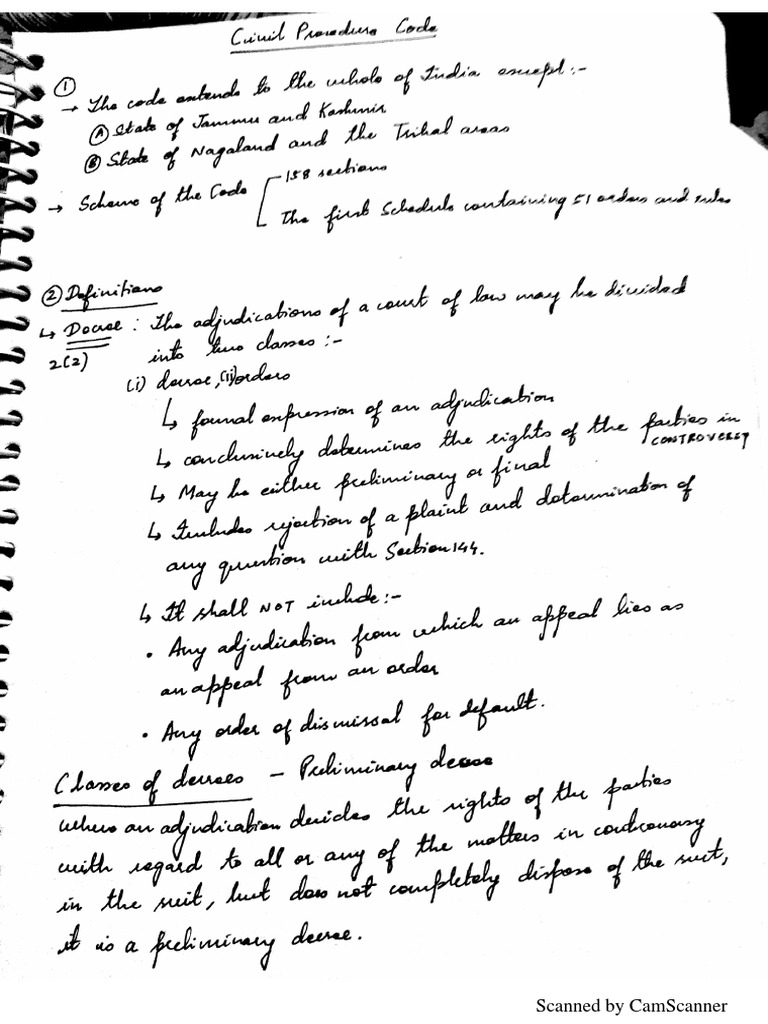 Civil Procedure Code
①
→ The code extends to the whole of India except:-
Ⓐ State of Jammu and Kashmir
Ⓑ State of Nagaland and the Tribal areas
→ Scheme of the Code
158 sections
The first Schedule containing 51 orders and rules
② Definitions
↳ Decree : The adjudications of a court of law may be divided
2(2)
into two classes :-
(i) decree, (ii) orders
↳ formal expression of an adjudication
↳ conclusively determines the rights of the parties in
CONTROVERSY
↳ May be either preliminary or final
↳ Includes rejection of a plaint and determination of
any question with Section 144.
↳ It shall NOT include:-
• Any adjudication from which an appeal lies as
an appeal from an order
• Any order of dismissal for default.
Classes of decrees - Preliminary decree
where an adjudication decides the rights of the parties
with regard to all or any of the matters in controversy
in the suit, but does not completely dispose of the suit,
it is a preliminary decree.
Scanned by CamScanner